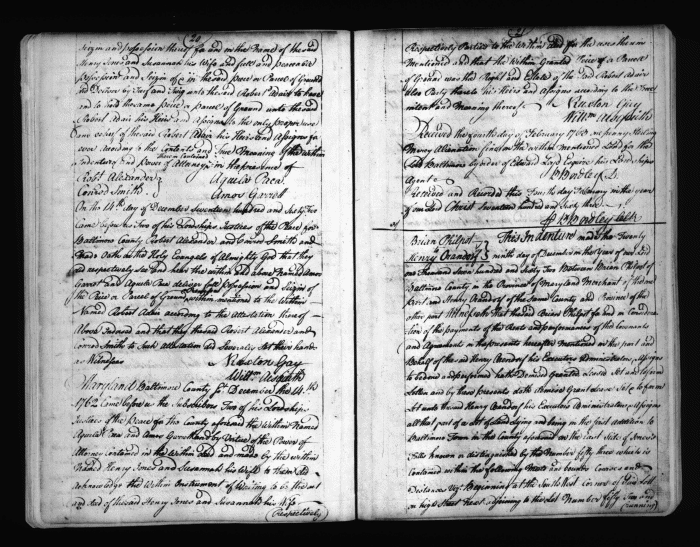 20
Seizin and possession thereof for and in the Name of the said
Henry Jones and Susannah his Wife and full and peaceable
possession and Seizin of in the said piece or Parcel of Ground
and Deliver by Turf and Twig unto the said Robert Adair to have
and to hold the same piece or parcel of Ground unto the said
Robert Adair his Heirs and Assigns to the only proper use
and behoof of the said Robert Adair his Heirs and Assigns for
ever according to the Contents and True Meaning of the within
Indenture and Power of Attorney in the presence of
therein Contained
Robt Alexander
Conrod Smith
Aquila Paca
Amos Garrett
On the 14th day of December Seventeen hundred and Sixty Two
Came before us Two of his Lordships Justices of the Peace for
Baltimore County Robert Alexander and Conrod Smith and
Made Oath on the Holy Evangels of Almighty God that they
did respectively see and hear the within and above Named Amos
Garrett and Aquila Paca deliver full possession and Seizin of
the Piece or Parcel of Ground within mentioned to the Within
Named Robert Adair according to the attestation thereof
Above Indorsed and that they the said Robert Alexander and
Conrod Smith to Such Attestation did severally Set their hands
as Witnesses
Ruxton Gay
Willm Aisquith
Maryland Baltimore County Sc December the 14th
1762 Came before us the Subscribers Two of his Lordships
Justices of the Peace for the County aforesaid the Within Named
Aquila Paca and Amos Garrett and by Virtue of the Power of
Attorney contained in the Within Deed and made by the within
Named Henry Jones and Susannah his Wife to them did
acknowledge the Within Instrument of Writing to be the act
and deed of the said Henry Jones and Susannah his Wife
(Respectively)
21
Respectively Parties to the Within Deed for the uses therein
Mentioned and that the Within Granted Piece of or Parcel
of Ground was the Right and Estate of the said Robert Adair
also Party thereto his Heirs and Assigns according to the True
intent and Meaning thereof
Ruxton Gay
Willm Aisquith
Received the fourth day of February 1763 Sterling
Money Alienation fine on the within mentioned Land for the
Lord Baltimore by order of Edward Lloyd Esquire his Lordships
Agent
B Bordley
Received and Recorded this fourth day February in the year
of our Lord Christ Seventeen hundred and Sixty three
B Bordley Clk
Brian Philpot
to
Henry Orandorf
This Indenture made the Twenty
ninth day of December in the Year of our Lord
one Thousand Seven hundred and Sixty Two Between Brian Philpot of
Baltimore County in the Province of Maryland Merchant of the one
part and Henry Orandorf of the Same County and Province of the
other part Witnesseth that the said Brian Philpot for and in Consideration
of the payments of the Rents and performances of the Covenants
and Agreement in the presents hereafter mentioned on the part and
Behalf of the said Henry Orandorf his Executors Administrators & Assigns
to be done and performed hath Demised Granted Leased Set and to farm
Letten and by these presents doth Demise Grant Lease Set & to farm
Let unto the said Henry Orandorf his Executors Administrators & Assigns
all that part of a Lot of Land lying and being in the first addition to
Baltimore Town in the County aforesaid on the East Side of Jones's
Falls known & distinguished by the Number fifty three which is
Contained within the following Metes and bounds Courses and
Distances Viz Beginning at the South West Corner of
on high Street next adjoining to the Lot Number fifty Two and
(running)